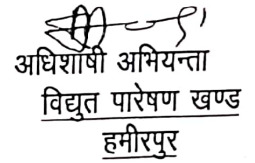 अधिशाषी अभियन्ता
विद्युत पारेषण खण्ड
हमीरपुर